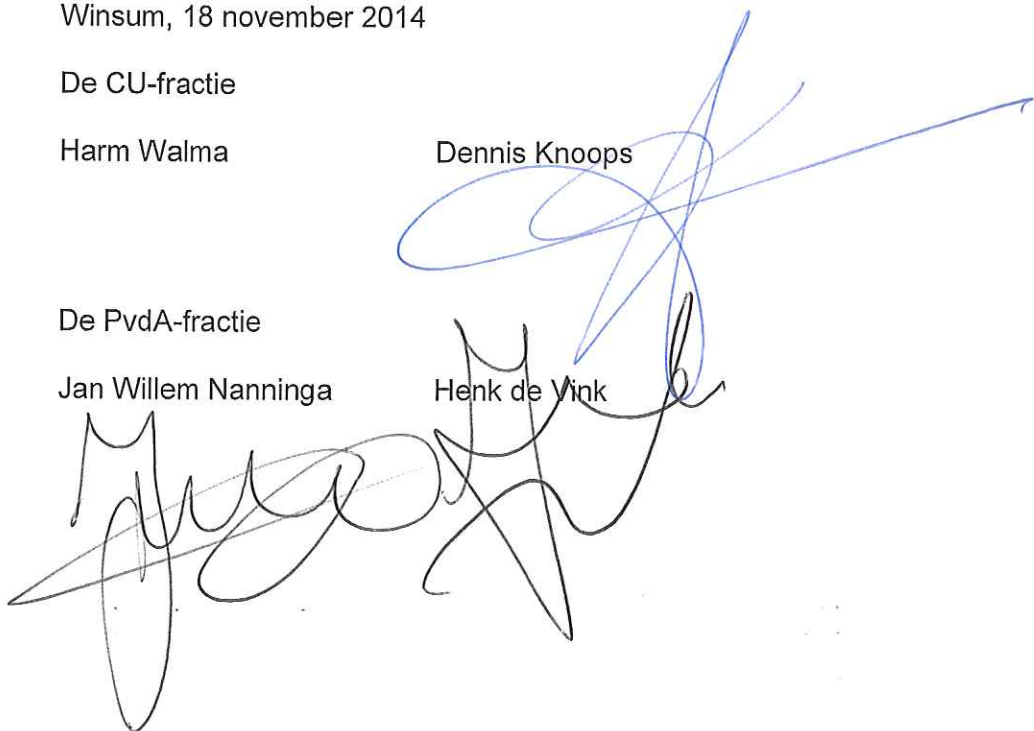 Winsum, 18 november 2014
De CU-fractie
Harm Walma Dennis Knoops
De PvdA-fractie
Jan Willem Nanninga Henk de Vink